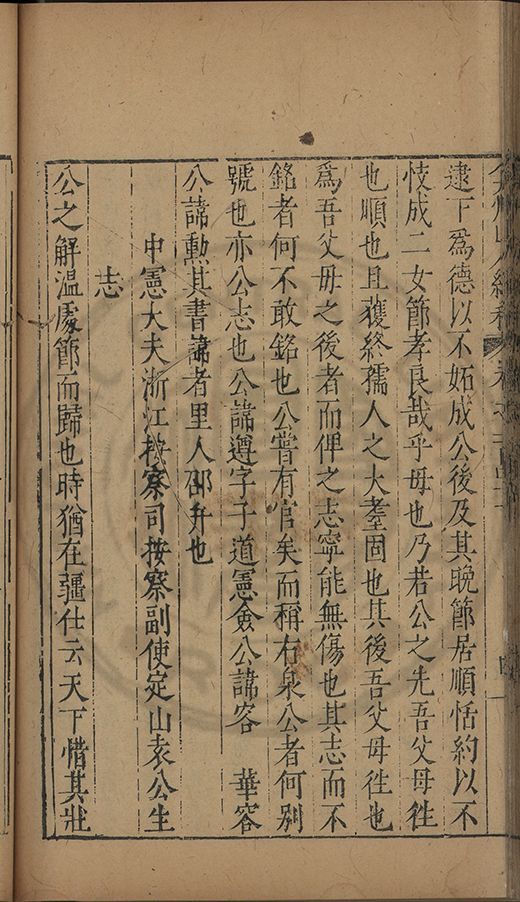 逮下爲德以不妬成公後及其晚節居順恬約以不
忮成二女節孝良哉乎母也乃若公之先吾父母徃
也順也且獲終孺人之大耋固也其後吾父母徃也
爲吾父母之後者而俾之志寧能無傷也其志而不
銘者何不敢銘也公嘗有官矣而稱右泉公者何别
號也亦公志也公諱遵字子道憲僉公諱容 華容
公諱勲其書諱者里人邵弁也
中憲大夫浙江按察司按察副使定山袁公生
志
公之解溫處節而歸也時猶在疆仕云天下惜其壯